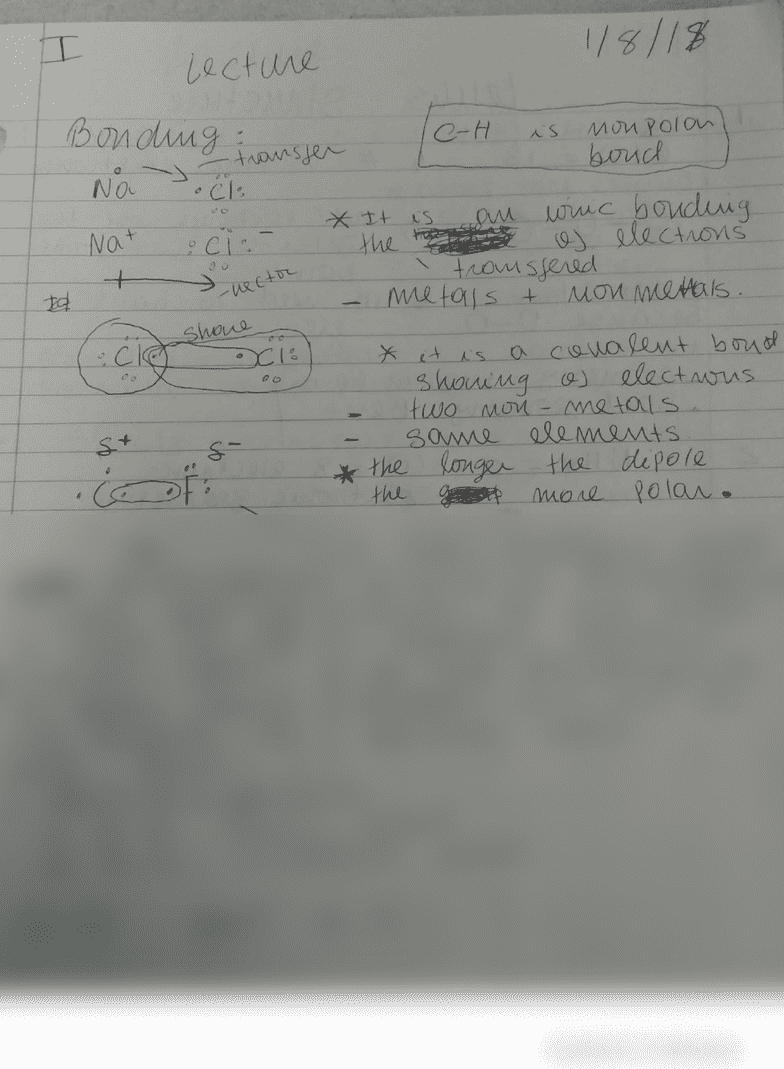 I
Lecture
1/8/18
Bonding:
C-H is nonpolar
bond
- transfer
Na Cl
* It is an ionic bonding
Na⁺ Cl⁻
the of electrons
transfered
- vector
- metals + nonmetals.
share
Cl Cl
* it is a covalent bond
sharing of electrons
- two non-metals.
- same elements
δ⁺ δ⁻
* the longer the dipole
C F
the more polar.